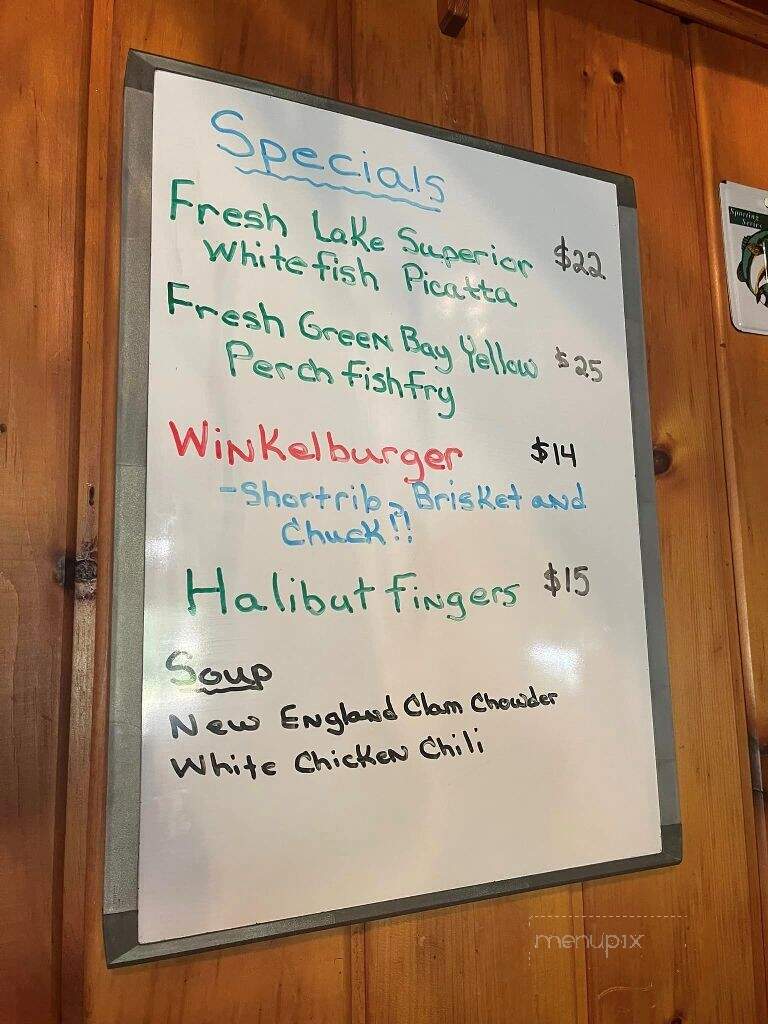 Specials
Fresh Lake Superior
Whitefish Picatta $22
Fresh Green Bay Yellow
Perch fishfry $25
Winkelburger $14
-Shortrib, Brisket and
Chuck!!
Halibut fingers $15
Soup
New England Clam Chowder
White Chicken Chili
Sporting
Series
menupix